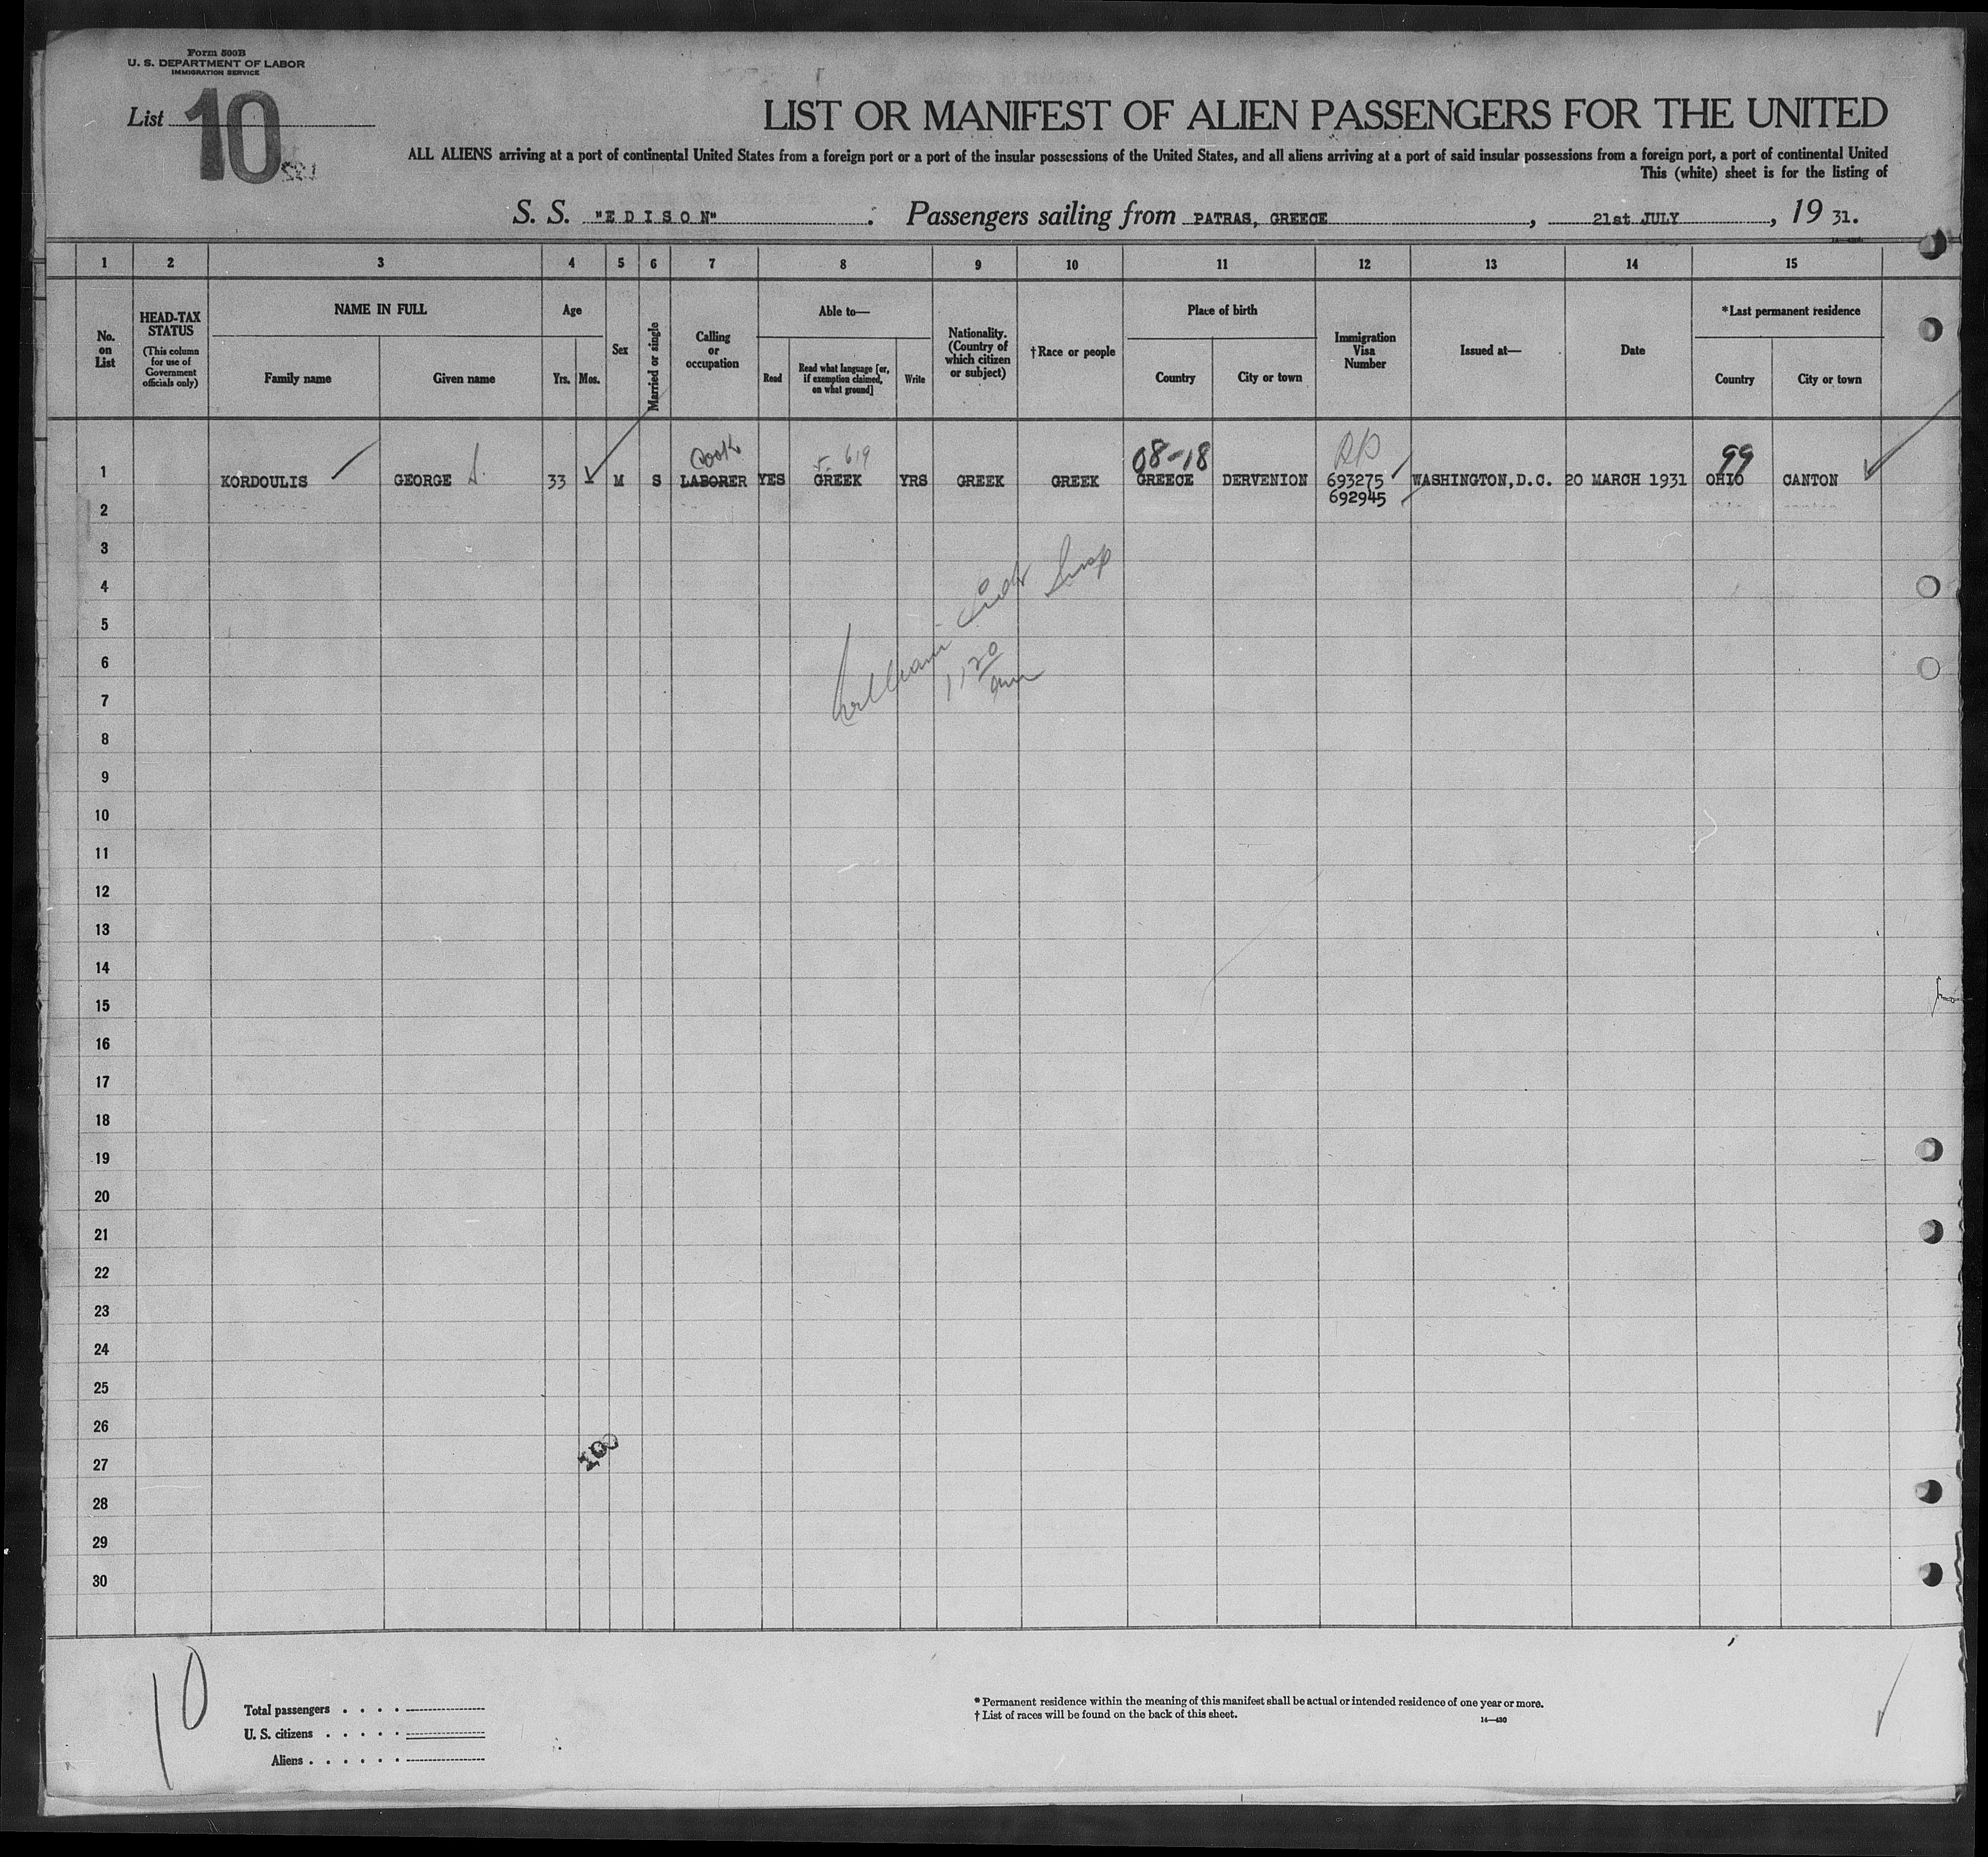 Form 500B
U. S. DEPARTMENT OF LABOR
IMMIGRATION SERVICE
List 10
LIST OR MANIFEST OF ALIEN PASSENGERS FOR THE UNITED
ALL ALIENS arriving at a port of continental United States from a foreign port or a port of the insular possessions of the United States, and all aliens arriving at a port of said insular possessions from a foreign port, a port of continental United
This (white) sheet is for the listing of
S. S. "E D I S O N" . Passengers sailing from PATRAS, GREECE , 21st JULY , 19 31.
1 2 3 4 5 6 7 8 9 10 11 12 13 14 15
No. on List
HEAD-TAX STATUS
(This column for use of Government officials only)
NAME IN FULL
Family name
Given name
Age
Yrs.
Mos.
Sex
Married or single
Calling or occupation
Able to—
Read
Read what language [or, if exemption claimed, on what ground]
Write
Nationality. (Country of which citizen or subject)
†Race or people
Place of birth
Country
City or town
Immigration Visa Number
Issued at—
Date
*Last permanent residence
Country
City or town
Cook 5-619 08-18 99
1 KORDOULIS GEORGE 33 M S LABORER YES GREEK YRS GREEK GREEK GREECE DERVENION 693275 WASHINGTON,D.C. 20 MARCH 1931 OHIO CANTON
692945
2
3
4
5
6
7
8
9
10
11
12
13
14
15
16
17
18
19
20
21
22
23
24
25
26
27
28
29
30
William Insp
11 20
am
100
10
Total passengers . . . .
U. S. citizens . . . . .
Aliens . . . . . .
* Permanent residence within the meaning of this manifest shall be actual or intended residence of one year or more.
† List of races will be found on the back of this sheet.
14—430